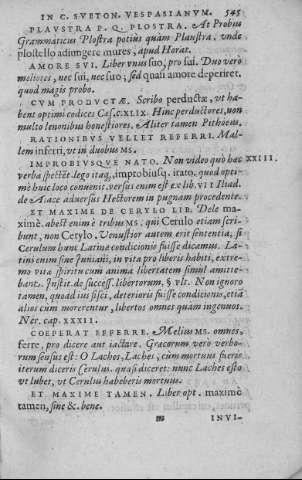 IN C. SVETON. VESPASIANVM. 545
PLAVSTRA P. Q. PLOSTRA. At Probus
Grammaticus Plostra potius quàm Plaustra, vnde
plostello adiungere mures, apud Horat.
AMORE SVI. Liber vnus suo, pro sui. Duo verò
meliores, nec sui, nec suo; sed quasi amore deperiret.
quod magis probo.
CVM PRODVCTÆ. Scribo perductæ, vt ha-
bent optimi codices Cæs. CXLIX. Hinc perductores, non
multo lenonibus honestiores. Aliter tamen Pithoeus.
RATIONIBVS VELLET REFERRI. Mal-
lem inferri, vt in duobus MS.
IMPROBIVSQVE NATO. Non video quò hæc XXIII.
verba spectēt: lego itaq, improbiusq. irato. quod opti-
mè huic loco conuenit. versus enim est ex lib. VII Iliad.
de Aiace aduersus Hectorem in pugnam procedente.
ET MAXIME DE CERYLO LIB. Dele ma-
ximè. abest enim è tribus MS. qui Cerulo etiam scri-
bunt, non Cerylo. Venustior autem erit sententia, si
Cerulum hunc Latinæ condicionis fuisse dicamus. La-
tini enim siue Juniani, in vita pro liberis habiti, extre-
mo vitæ spiritu cum anima libertatem simul amitte-
bant. Instit. de success. libertorum, § vlt. Non ignoro
tamen, quod ius sisci, deterioris fuisse condicionis, etiā
alios cum morerentur, libertos omnes quàm ingenuos.
Ner. cap. XXXII.
COEPERAT EFFERRE. Melius MS. omnes,
ferre, pro dicere aut iactare. Græcorum vero verbo-
rum sensus est: O Lachos, Laches, cùm mortuus fueris
iterum diceris Cerulus. quasi diceret: nunc Laches esto
vt lubet, vt Cerulus habeberis mortuus.
ET MAXIME TAMEN. Liber opt. maximè
tamen, sine &. bene.
m INVI-